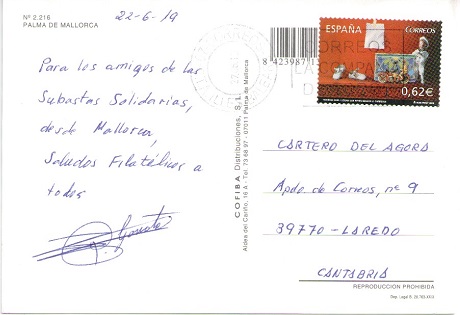 Nº 2.216
PALMA DE MALLORCA
22-6-19
Para los amigos de las
Subastas Solidarias,
desde Mallorca,
Saludos Filatélicos a
todos
COFIBA Distribuciones, S.L.
Aldea del Cariño, 16 A - Tel. 73 68 97 - 07011 Palma de Mallorca
8 423987 1
CORREOS
ESPAÑA
CORREOS
0,62€
CARTERO DEL AGORA
Apdo. de Correos, nº 9
39770 - LAREDO
CANTABRIA
REPRODUCCION PROHIBIDA